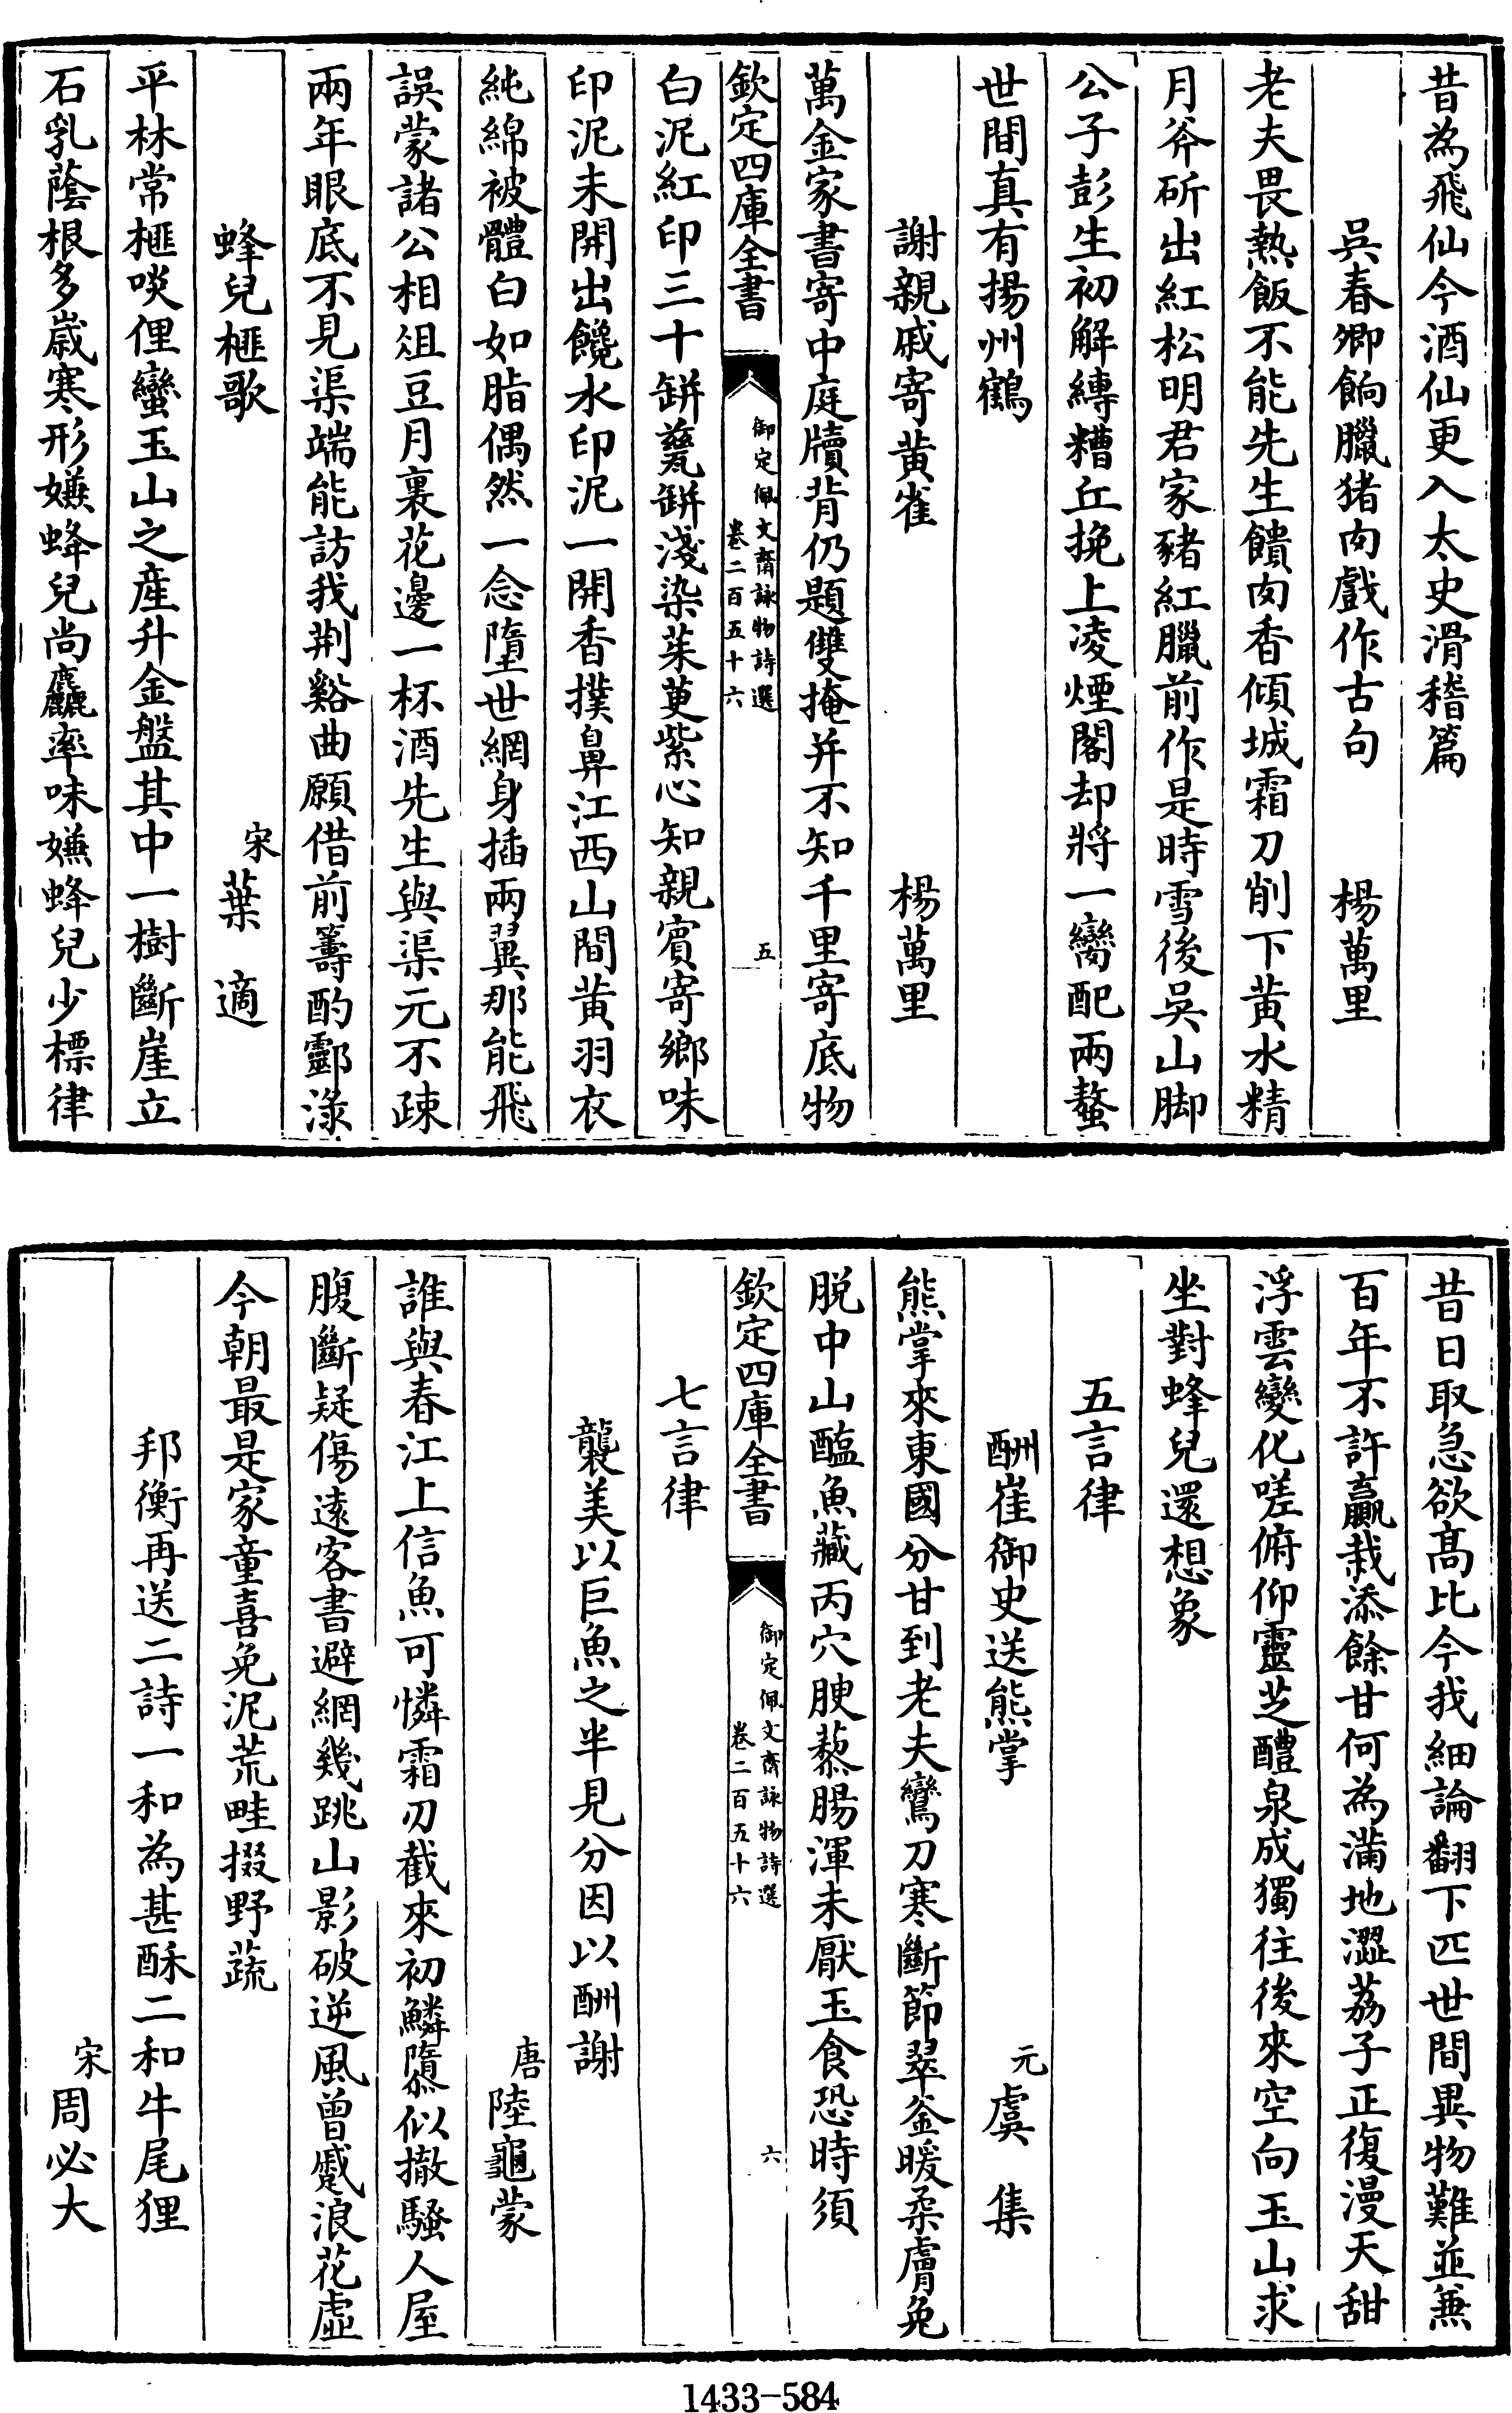 昔為飛仙今酒仙更入太史滑稽篇
吳春卿餉臘猪肉戲作古句 楊萬里
老夫畏熱飯不能先生饋肉香傾城霜刀削下黄水精
月斧斫出紅松明君家豬紅臘前作是時雪後吳山脚
公子彭生初解縳糟丘挽上凌煙閣却將一臠配兩螯
世間真有揚州鶴
謝親戚寄黄雀 楊萬里
萬金家書寄中庭牘背仍題雙掩并不知千里寄底物
欽定四庫全書 御定佩文齋詠物詩選 卷二百五十六 五
白泥紅印三十缾甆缾淺染茱萸紫心知親賓寄鄉味
印泥未開出饞水印泥一開香撲鼻江西山間黄羽衣
純綿被體白如脂偶然一念墮世網身插兩翼那能飛
誤蒙諸公相俎豆月裏花邊一杯酒先生與渠元不疎
兩年眼底不見渠端能訪我荆谿曲願借前籌酌酃渌
蜂兒榧歌 宋葉適
平林常榧啖俚蠻玉山之産升金盤其中一樹斷崖立
石乳蔭根多歲寒形嫌蜂兒尚麤率味嫌蜂兒少標律
昔日取急欲髙比今我細論翻下匹世間異物難並兼
百年不許贏栽添餘甘何為滿地澀荔子正復漫天甜
浮雲變化嗟俯仰靈芝醴泉成獨往後來空向玉山求
坐對蜂兒還想象
五言律
酬崔御史送熊掌 元虞集
熊掌來東國分甘到老夫鸞刀寒斷節翠釜暖柔膚免
脱中山醢魚藏丙穴腴藜腸渾未厭玉食恐時須
欽定四庫全書 御定佩文齋詠物詩選 卷二百五十六 六
七言律
襲美以巨魚之半見分因以酬謝
唐陸龜蒙
誰與春江上信魚可憐霜刃截來初鱗隳似撤騷人屋
腹斷疑傷逺客書避網幾跳山影破逆風曾蹙浪花虛
今朝最是家童喜免泥荒畦掇野蔬
邦衡再送二詩一和為甚酥二和牛尾狸
宋周必大
1433-584